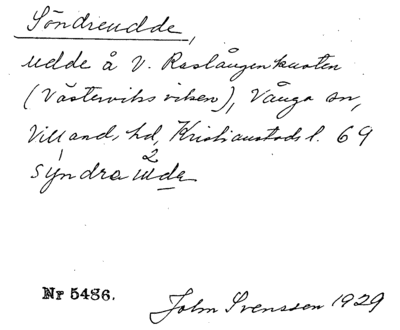 Söndreudde,
udde å V. Raslångenkusten
(Västerviks viken), Vånga sn,
Villands hd, Kristianstads l. 69
sýndra ²ude
Nr 5486.
John Svensson 1929